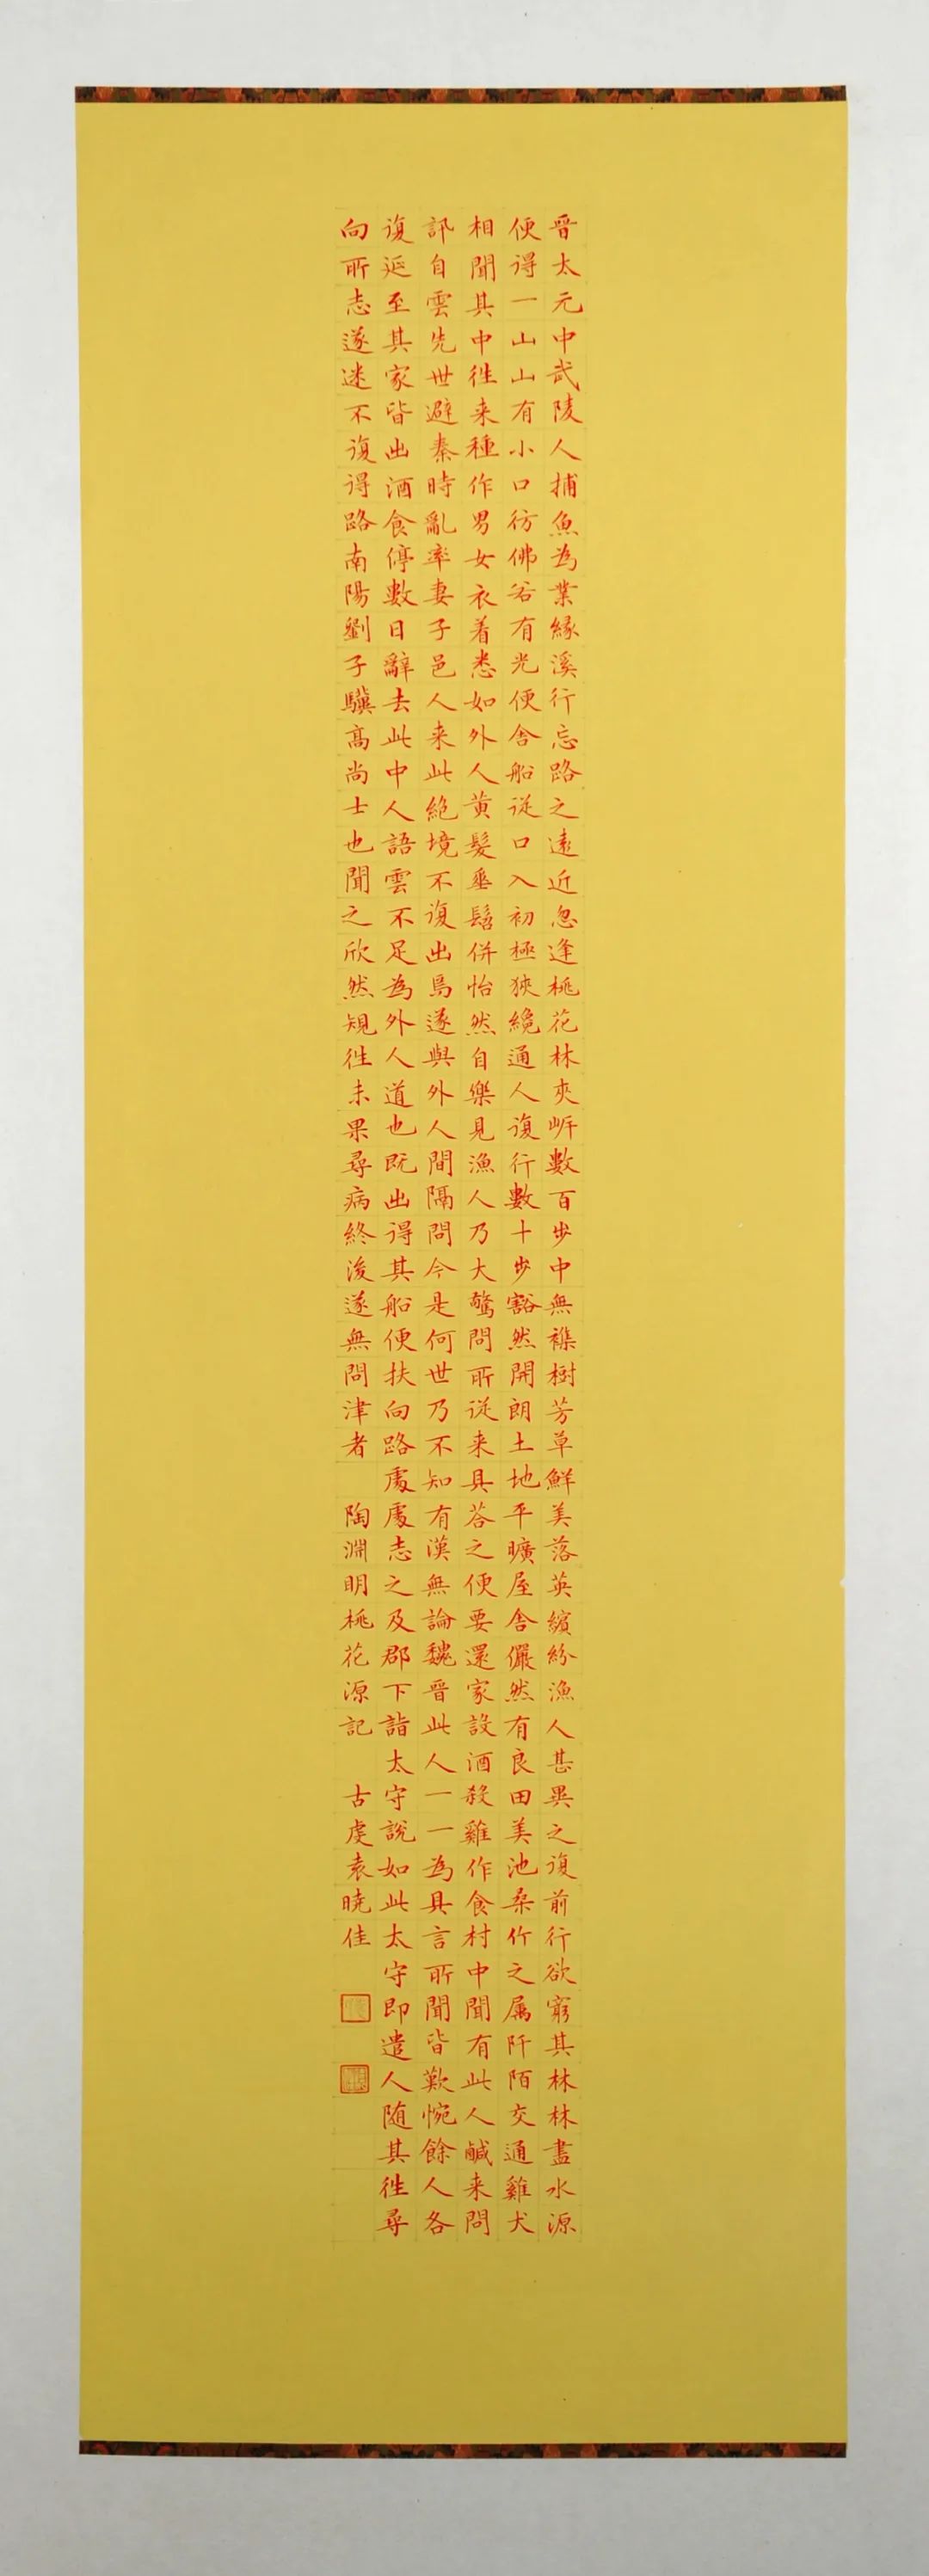 晉太元中武陵人捕魚為業緣溪行忘路之遠近忽逢桃花林夾岍數百步中無襍樹芳草鮮美落英繽紛漁人甚異之復前行欲窮其林林盡水源
便得一山山有小口彷佛若有光便舍船從口入初極狹纔通人復行數十步豁然開朗土地平曠屋舍儼然有良田美池桑竹之属阡陌交通雞犬
相聞其中徃来種作男女衣着悉如外人黄髮垂髫併怡然自樂見漁人乃大驚問所從来具荅之便要還家設酒殺雞作食村中聞有此人鹹来問
訊自雲先世避秦時亂率妻子邑人来此絶境不復出焉遂與外人間隔問今是何世乃不知有漢無論魏晉此人一一為具言所聞皆歎惋餘人各
復延至其家皆出酒食停數日辭去此中人語雲不足為外人道也既出得其船便扶向路處處志之及郡下詣太守說如此太守即遣人随其徃尋
向所志遂迷不復得路南陽劉子驥高尚士也聞之欣然規徃未果尋病終後遂無問津者 陶淵明桃花源記 古虞袁曉佳